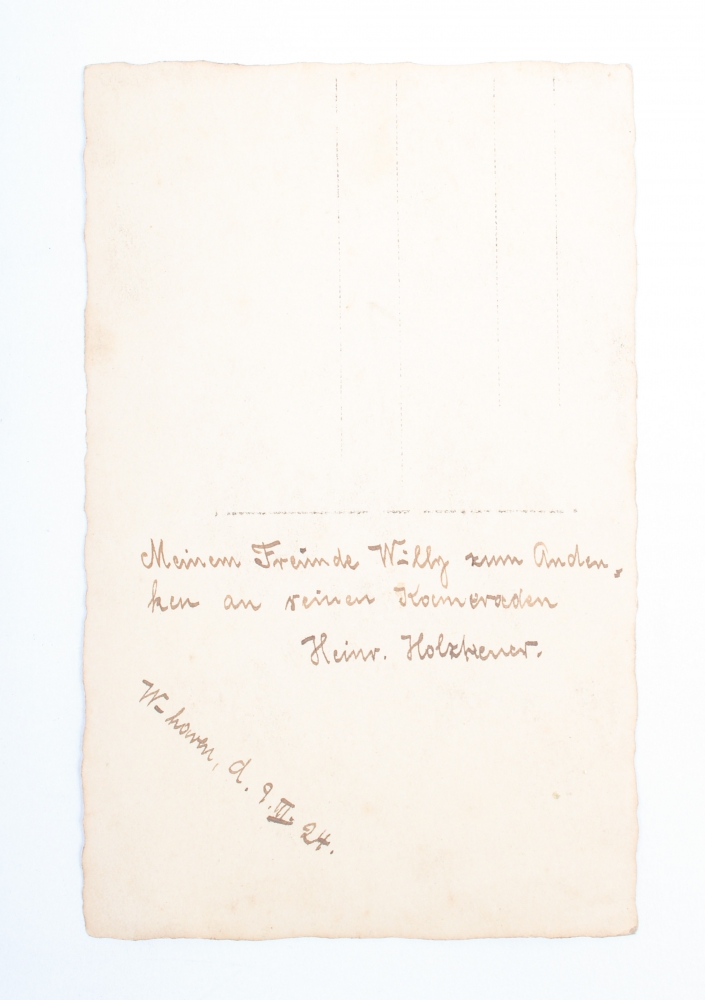 Meinem Freunde Willy zum Anden-
ken an seinen Kameraden
Heinr.
W-haven, d. 9. III. 24.